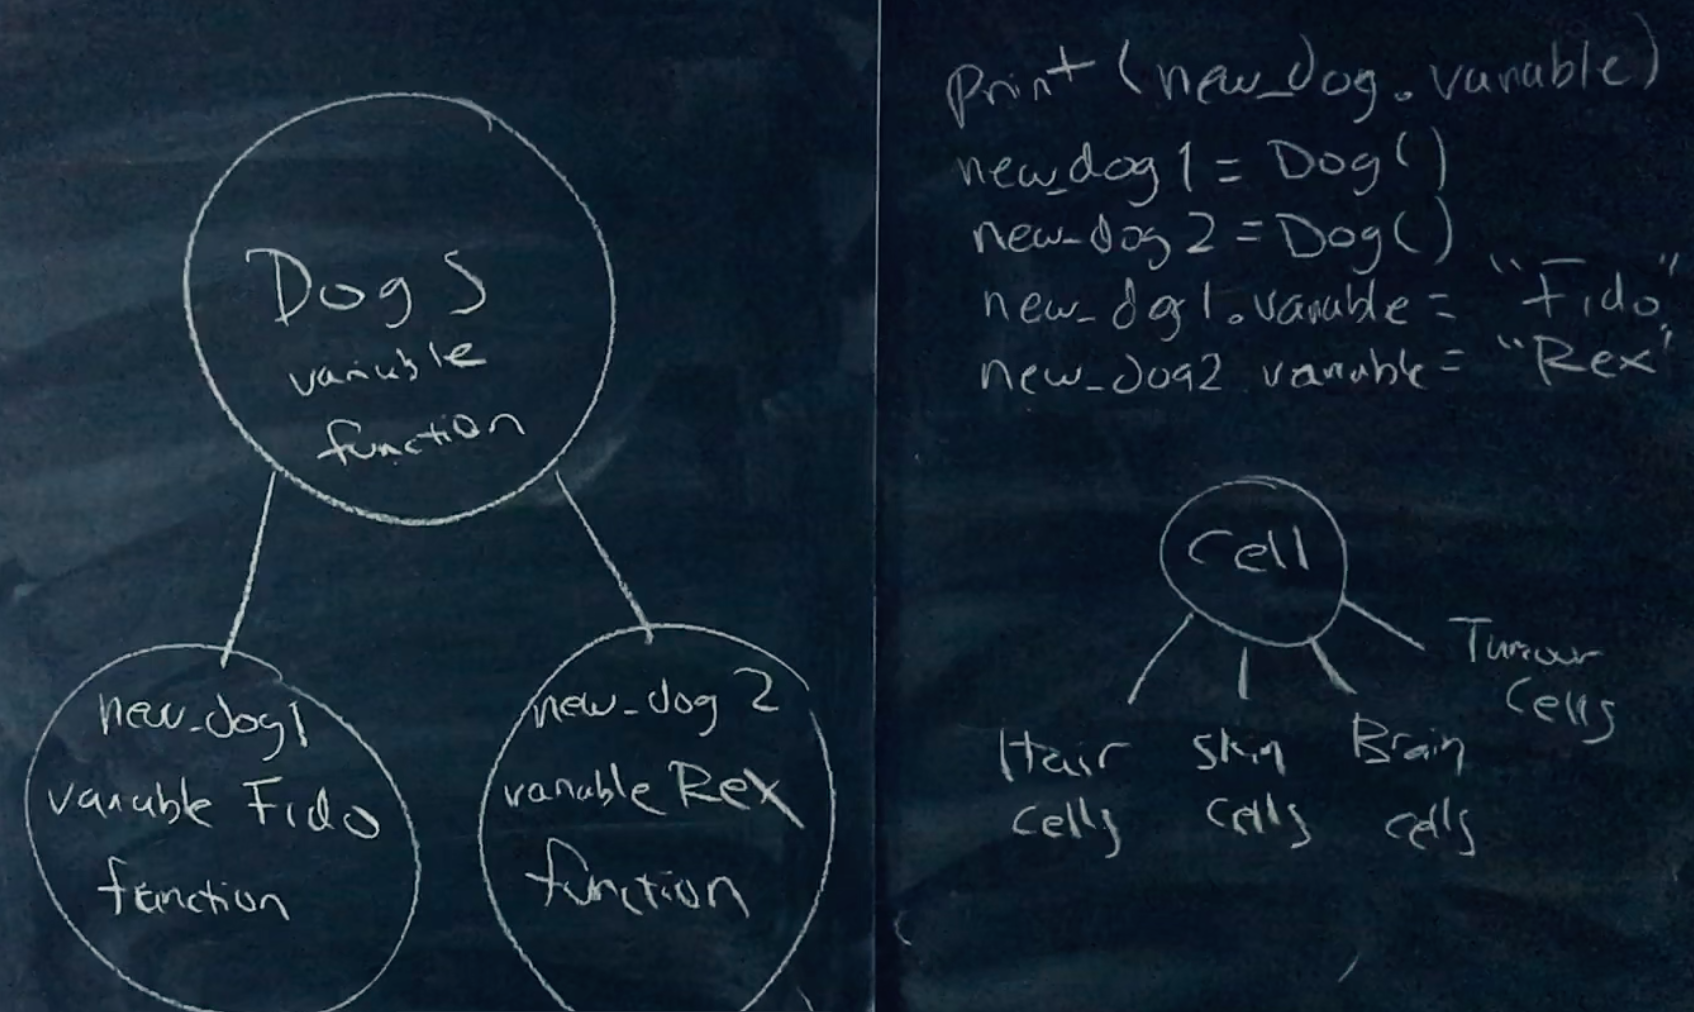 Dogs
variable
function
new_dog1
variable Fido
function
new_dog 2
variable Rex
function
print (new_dog.variable)
new_dog1 = Dog()
new_dog2 = Dog()
new_dog1.variable = "Fido"
new_dog2 variable = "Rex"
Cell
Tumour
Cells
Hair
cells
Skin
cells
Brain
cells